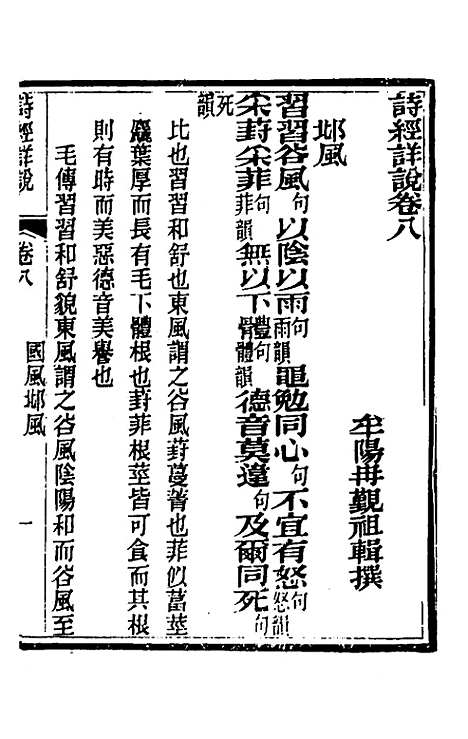 詩經詳說卷八
牟陽冉覲祖輯撰
邶風
習習谷風句以陰以雨句雨韻黽勉同心句不宜有怒句怒韻
采葑采菲句菲韻無以下體句體韻德音莫違句及爾同死句
死韻
比也習習和舒也東風謂之谷風葑蔓菁也菲似葍莖
麤葉厚而長有毛下體根也葑菲根莖皆可食而其根
則有時而美惡德音美譽也
毛傳習習和舒貌東風謂之谷風陰陽和而谷風至
詩經詳說 卷八 國風邶風 一